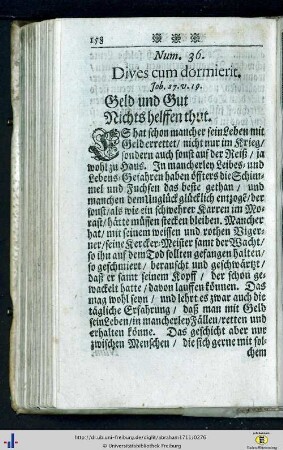 158 * * *
Num. 36.
Dives cum dormierit.
Job. 27. v. 19.
Geld und Gut
Nichts helffen thut.
ES hat schon mancher sein Leben mit
Geld errettet / nicht nur im Krieg /
sondern auch sonst auf der Reiß / ja
wohl zu Haus. In mancherley Leibs- und
Lebens-Gefahren haben öffters die Schim-
mel und Fuchsen das beste gethan / und
manchen dem Unglück glücklich entzogē / der
sonst / als wie ein schwehrer Karren im Mo-
rast / hätte müssen stecken bleiben. Mancher
hat / mit seinem weissen und rothen Viger-
ner / seine Kercker-Meister samt der Wacht /
so ihn auf dem Tod sollten gefangen halten /
so geschmiert / berauscht und geschwärtzt /
daß er samt seinem Kopff / der schon ge-
wackelt hatte / davon lauffen können. Das
mag wohl seyn / und lehrt es zwar auch die
tägliche Erfahrung / daß man mit Geld
sein Leben / in mancherley Fällen / retten und
erhalten könne. Das geschicht aber nur
zwischen Menschen / die sich gerne mit sol-
chem
http://dl.ub.uni-freiburg.de/diglit/abraham1711/0276
© Universitätsbibliothek Freiburg